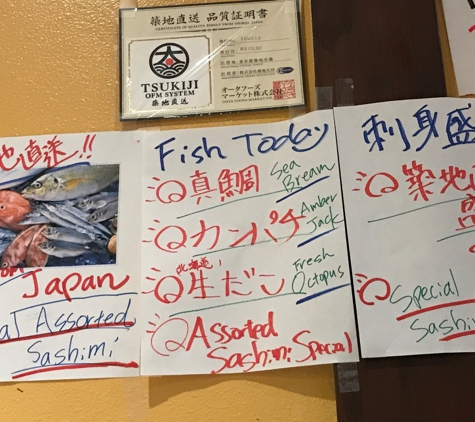 築地直送 品質証明書
CERTIFICATE OF QUALITY, DIRECT FROM TSUKIJI, JAPAN
TSUKIJI
OFM SYSTEM
築地直送
オータフーズ
マーケット株式会社
地直送!!
Japan
al Assorted
Sashimi
Fish Today
真鯛 Sea Bream
カンパチ Amber Jack
北海道!
生だこ Fresh Octopus
Assorted
Sashimi Special
刺身盛
築地直
盛
Special
Sashi